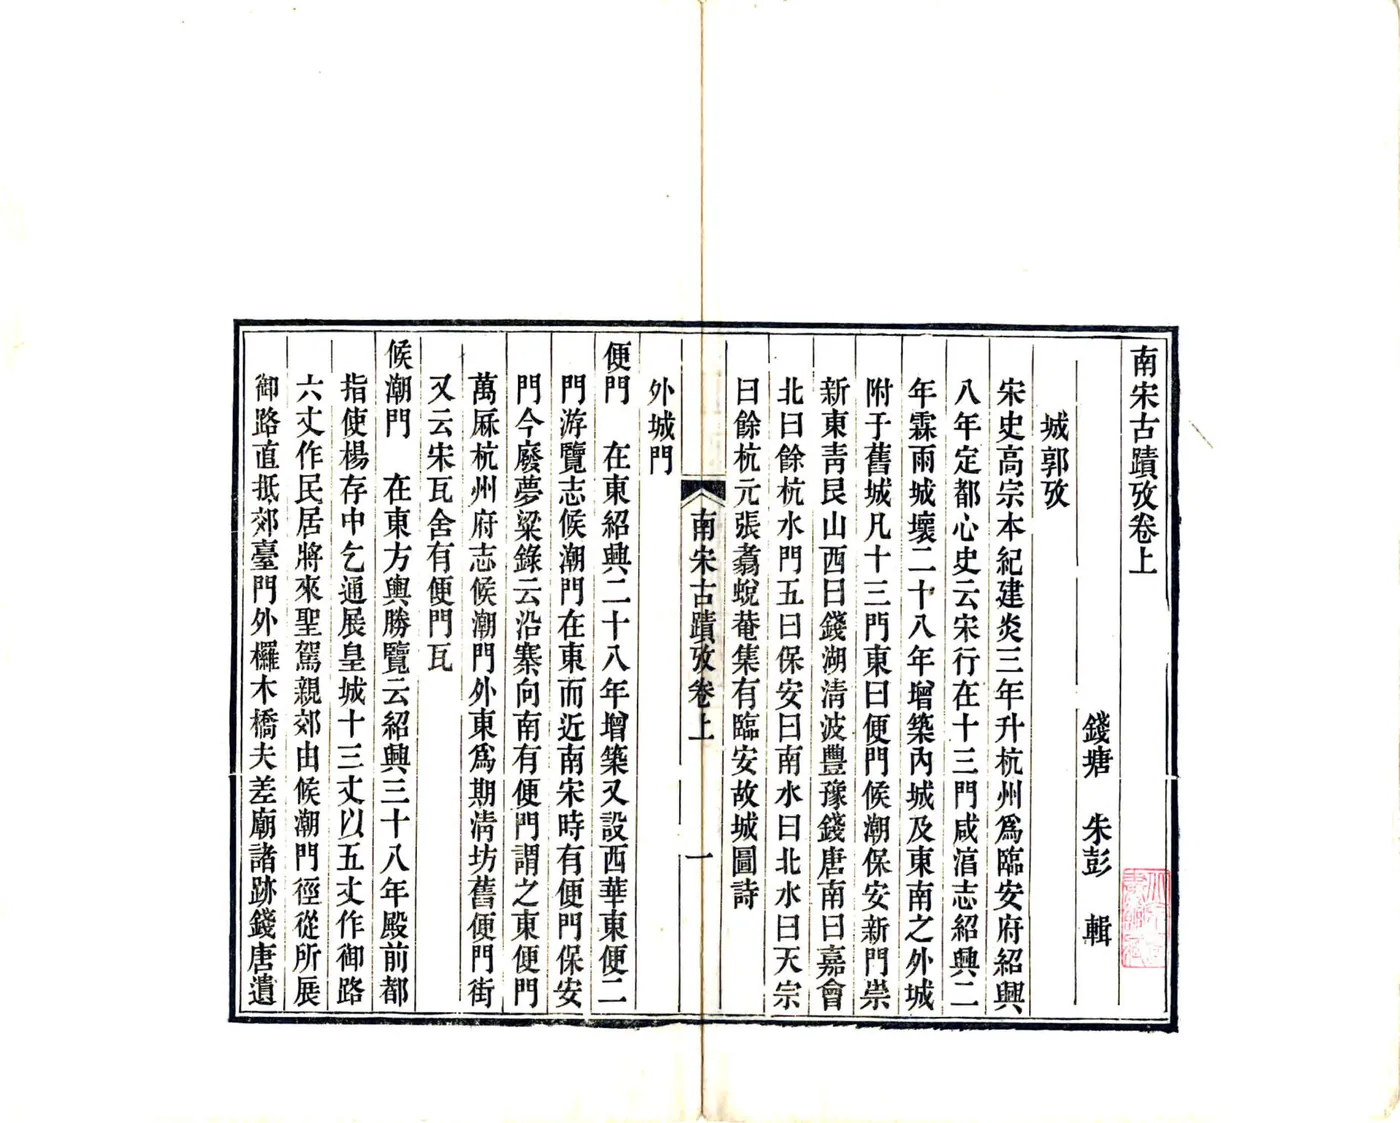 南宋古蹟攷卷上
錢塘　朱彭　輯
城郭攷
宋史高宗本紀建炎三年升杭州爲臨安府紹興
八年定都心史云宋行在十三門咸淳志紹興二
年霖雨城壞二十八年增築內城及東南之外城
附于舊城凡十三門東曰便門候潮保安新門崇
新東靑艮山西曰錢湖淸波豐豫錢唐南曰嘉會
北曰餘杭水門五曰保安曰南水曰北水曰天宗
曰餘杭元張翥蛻菴集有臨安故城圖詩
南宋古蹟攷卷上　一
外城門
便門　在東紹興二十八年增築又設西華東便二
門游覽志候潮門在東而近南宋時有便門保安
門今廢夢粱錄云沿寨向南有便門謂之東便門
萬厤杭州府志候潮門外東爲期淸坊舊便門街
又云宋瓦舍有便門瓦
候潮門　在東方輿勝覽云紹興三十八年殿前都
指使楊存中乞通展皇城十三丈以五丈作御路
六丈作民居將來聖駕親郊由候潮門徑從所展
御路直抵郊臺門外欏木橋夫差廟諸跡錢唐遺